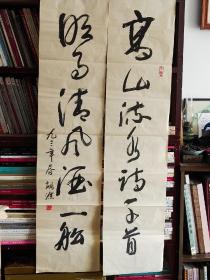 高山流水诗千首
明月清风酒一船
九三年春